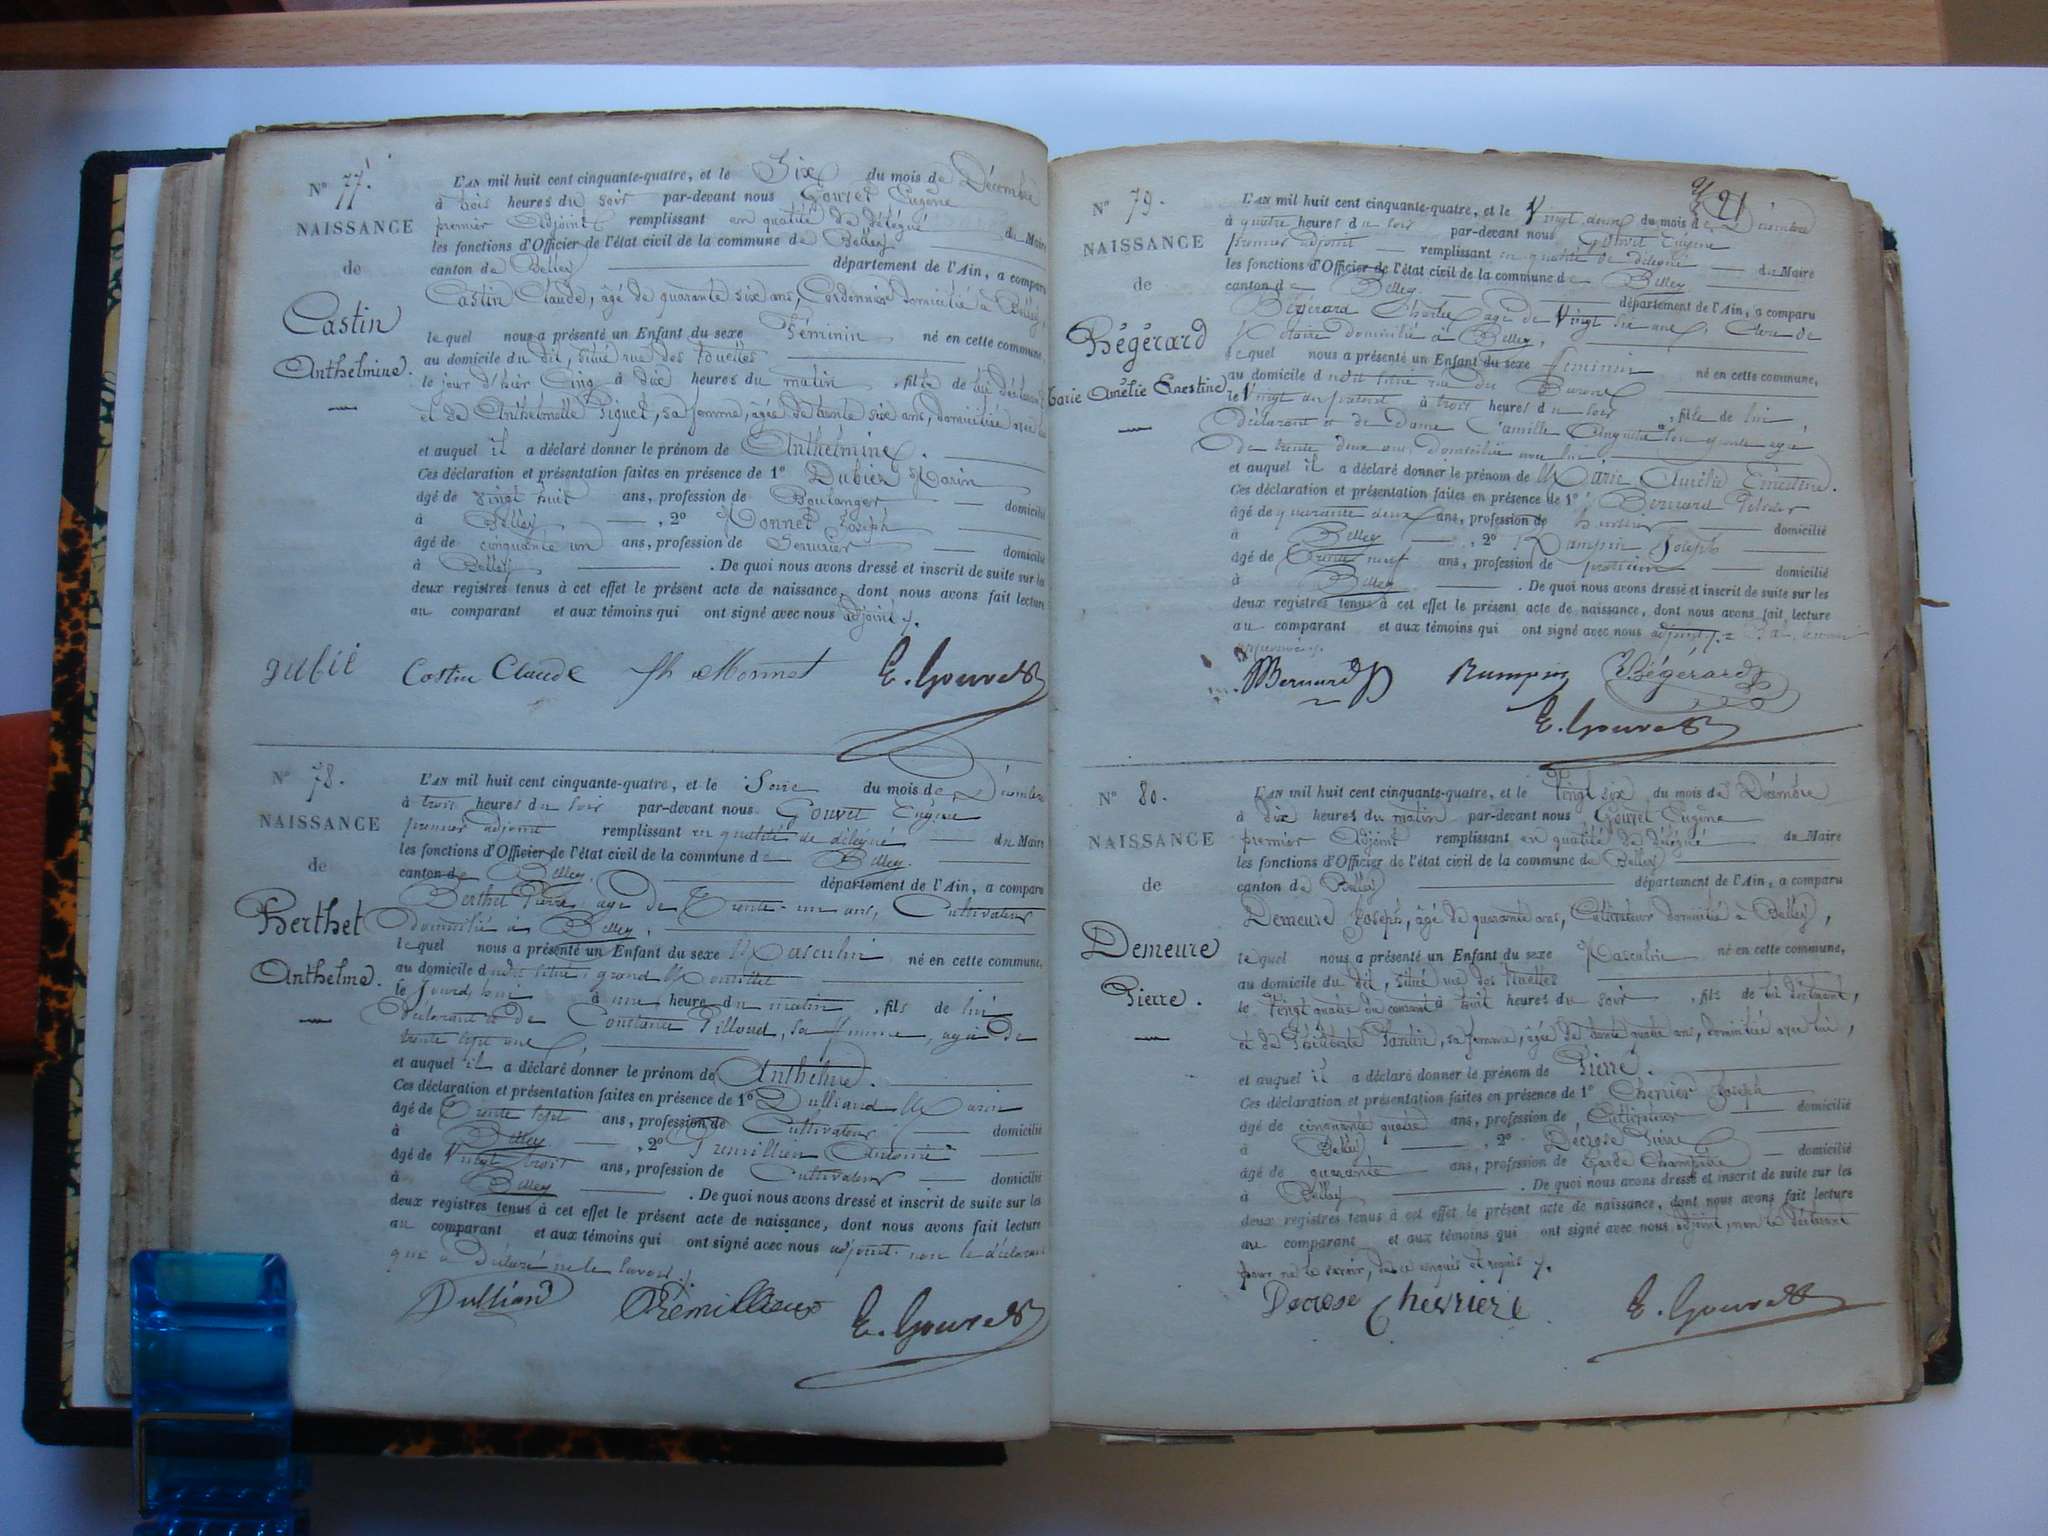 N° 77.
NAISSANCE
de
Castin
Anthelmine.
L'AN mil huit cent cinquante-quatre, et le Six du mois de Décembre
à trois heures du soir par-devant nous Gouvet Eugène
premier Adjoint remplissant en qualité de délégué du Maire
les fonctions d'Officier de l'état civil de la commune de Belley
canton de Belley département de l'Ain, a comparu
Castin Claude, âgé de quarante six ans, Cordonnier domicilié à Belley,
lequel nous a présenté un Enfant du sexe féminin né en cette commune,
au domicile du dit, situé rue des
le jour d'hier Cinq à dix heures du matin, fille de lui déclarant
et de Anthelmette Piquet, sa femme, âgée de trente six ans, domiciliée avec lui
et auquel il a déclaré donner le prénom de Anthelmine.
Ces déclaration et présentation faites en présence de 1° Marin
âgé de vingt huit ans, profession de Boulanger domicilié
à Belley, 2° Monnet Joseph
âgé de cinquante un ans, profession de Serrurier domicilié
à Belley. De quoi nous avons dressé et inscrit de suite sur les
deux registres tenus à cet effet le présent acte de naissance, dont nous avons fait lecture
au comparant et aux témoins qui ont signé avec nous adjoint
Castin Claude Jh Monnet E. Gouvet
N° 78.
NAISSANCE
de
Berthet
Anthelme.
L'AN mil huit cent cinquante-quatre, et le du mois de Décembre
à trois heures du soir par-devant nous Gouvet Eugène
premier adjoint remplissant en qualité de délégué du Maire
les fonctions d'Officier de l'état civil de la commune de Belley.
canton de Belley. département de l'Ain, a comparu
Berthet Pierre, agé de Trente-un ans, Cultivateur
domicilié à Belley.
lequel nous a présenté un Enfant du sexe Masculin né en cette commune,
au domicile dudit situé, grand
le jourd'hui à une heure du matin, fils de lui
déclarant et de Constance Pilloud, sa femme, agée de
trente sept ans,
et auquel il a déclaré donner le prénom de Anthelme.
Ces déclaration et présentation faites en présence de 1° Dulliand Marin
âgé de Trente sept ans, profession de Cultivateur domicilié
à Belley, 2° Antoine
âgé de Vingt trois ans, profession de Cultivateur domicilié
à Belley. De quoi nous avons dressé et inscrit de suite sur les
deux registres tenus à cet effet le présent acte de naissance, dont nous avons fait lecture
au comparant et aux témoins qui ont signé avec nous adjoint non le déclarant
qui a déclaré ne le savoir
Dulliand E. Gouvet
21
N° 79.
NAISSANCE
de
Bégérard
Marie Amélie Ernestine
L'AN mil huit cent cinquante-quatre, et le Vingt deux du mois de Décembre
à quatre heures du soir par-devant nous Gouvet Eugène
premier adjoint remplissant en qualité de délégué du Maire
les fonctions d'Officier de l'état civil de la commune de Belley
canton de Belley département de l'Ain, a comparu
Bégérard Charles agé de Vingt six ans, Clerc de
Notaire domicilié à Belley,
lequel nous a présenté un Enfant du sexe féminin né en cette commune,
au domicile dudit situé rue du
le Vingt un présent à trois heures du soir, fille de lui
déclarant et de Dame Camille agée
de trente deux ans, domiciliée avec lui
et auquel il a déclaré donner le prénom de Marie Amélie Ernestine.
Ces déclaration et présentation faites en présence de 1° Bernard
âgé de quarante deux ans, profession de huissier domicilié
à Belley, 2° Rumpin Joseph
âgé de Trente neuf ans, profession de domicilié
à Belley. De quoi nous avons dressé et inscrit de suite sur les
deux registres tenus à cet effet le présent acte de naissance, dont nous avons fait lecture
au comparant et aux témoins qui ont signé avec nous adjoint
Bernard Rumpin Bégérard
E. Gouvet
N° 80.
NAISSANCE
de
Demeure
Pierre.
L'AN mil huit cent cinquante-quatre, et le Vingt six du mois de Décembre
à dix heures du matin par-devant nous Gouvet Eugène
premier Adjoint remplissant en qualité de délégué du Maire
les fonctions d'Officier de l'état civil de la commune de Belley
canton de Belley département de l'Ain, a comparu
Demeure Joseph, âgé de quarante ans, Cultivateur domicilié à Belley,
lequel nous a présenté un Enfant du sexe Masculin né en cette commune,
au domicile du dit, situé rue des
le Vingt quatre du courant à huit heures du soir, fils de lui déclarant,
et de Pantin, sa femme, âgée de trente quatre ans, domiciliée avec lui,
et auquel il a déclaré donner le prénom de Pierre.
Ces déclaration et présentation faites en présence de 1° Joseph
âgé de cinquante quatre ans, profession de Cultivateur domicilié
à Belley, 2° Décrose Pierre
âgé de quarante ans, profession de Garde Champêtre domicilié
à Belley. De quoi nous avons dressé et inscrit de suite sur les
deux registres tenus à cet effet le présent acte de naissance, dont nous avons fait lecture
au comparant et aux témoins qui ont signé avec nous adjoint, non le déclarant
pour ne le savoir, de ce enquis et requis
Decrose Cherriere E. Gouvet